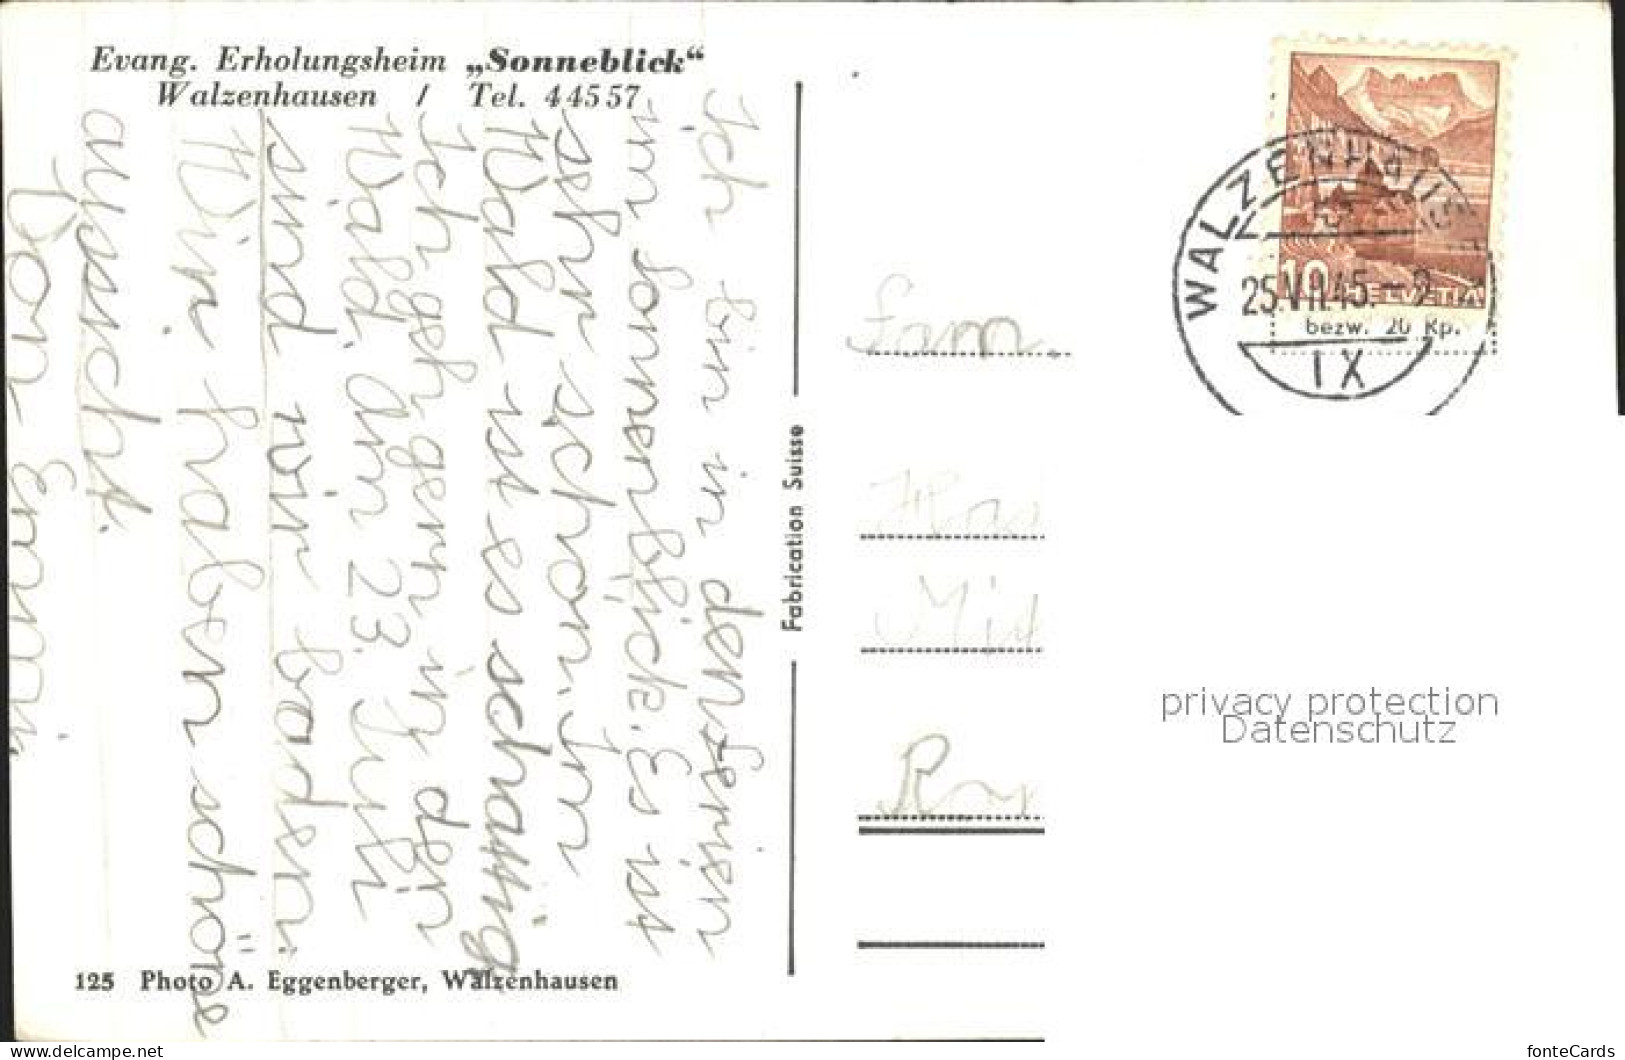 Evang. Erholungsheim „Sonneblick“
Walzenhausen / Tel. 4 45 57
Ich bin in den ferin
im Sonnenblick. Es ist
sehr schön. Im
Wald ist es schattig
Ich geh gern in der
Wald. Am 23. Juli
sind wir baden.
Wir haben schöne
aussicht.
Von Emmi
Fabrication Suisse
125 Photo A. Eggenberger, Walzenhausen
Fam.
WALZENHAUSEN
25.VII.45.-9
IX
10 HELVETIA
bezw. 20 Rp.
privacy protection
Datenschutz
https://www.delcampe.net
fonteCards